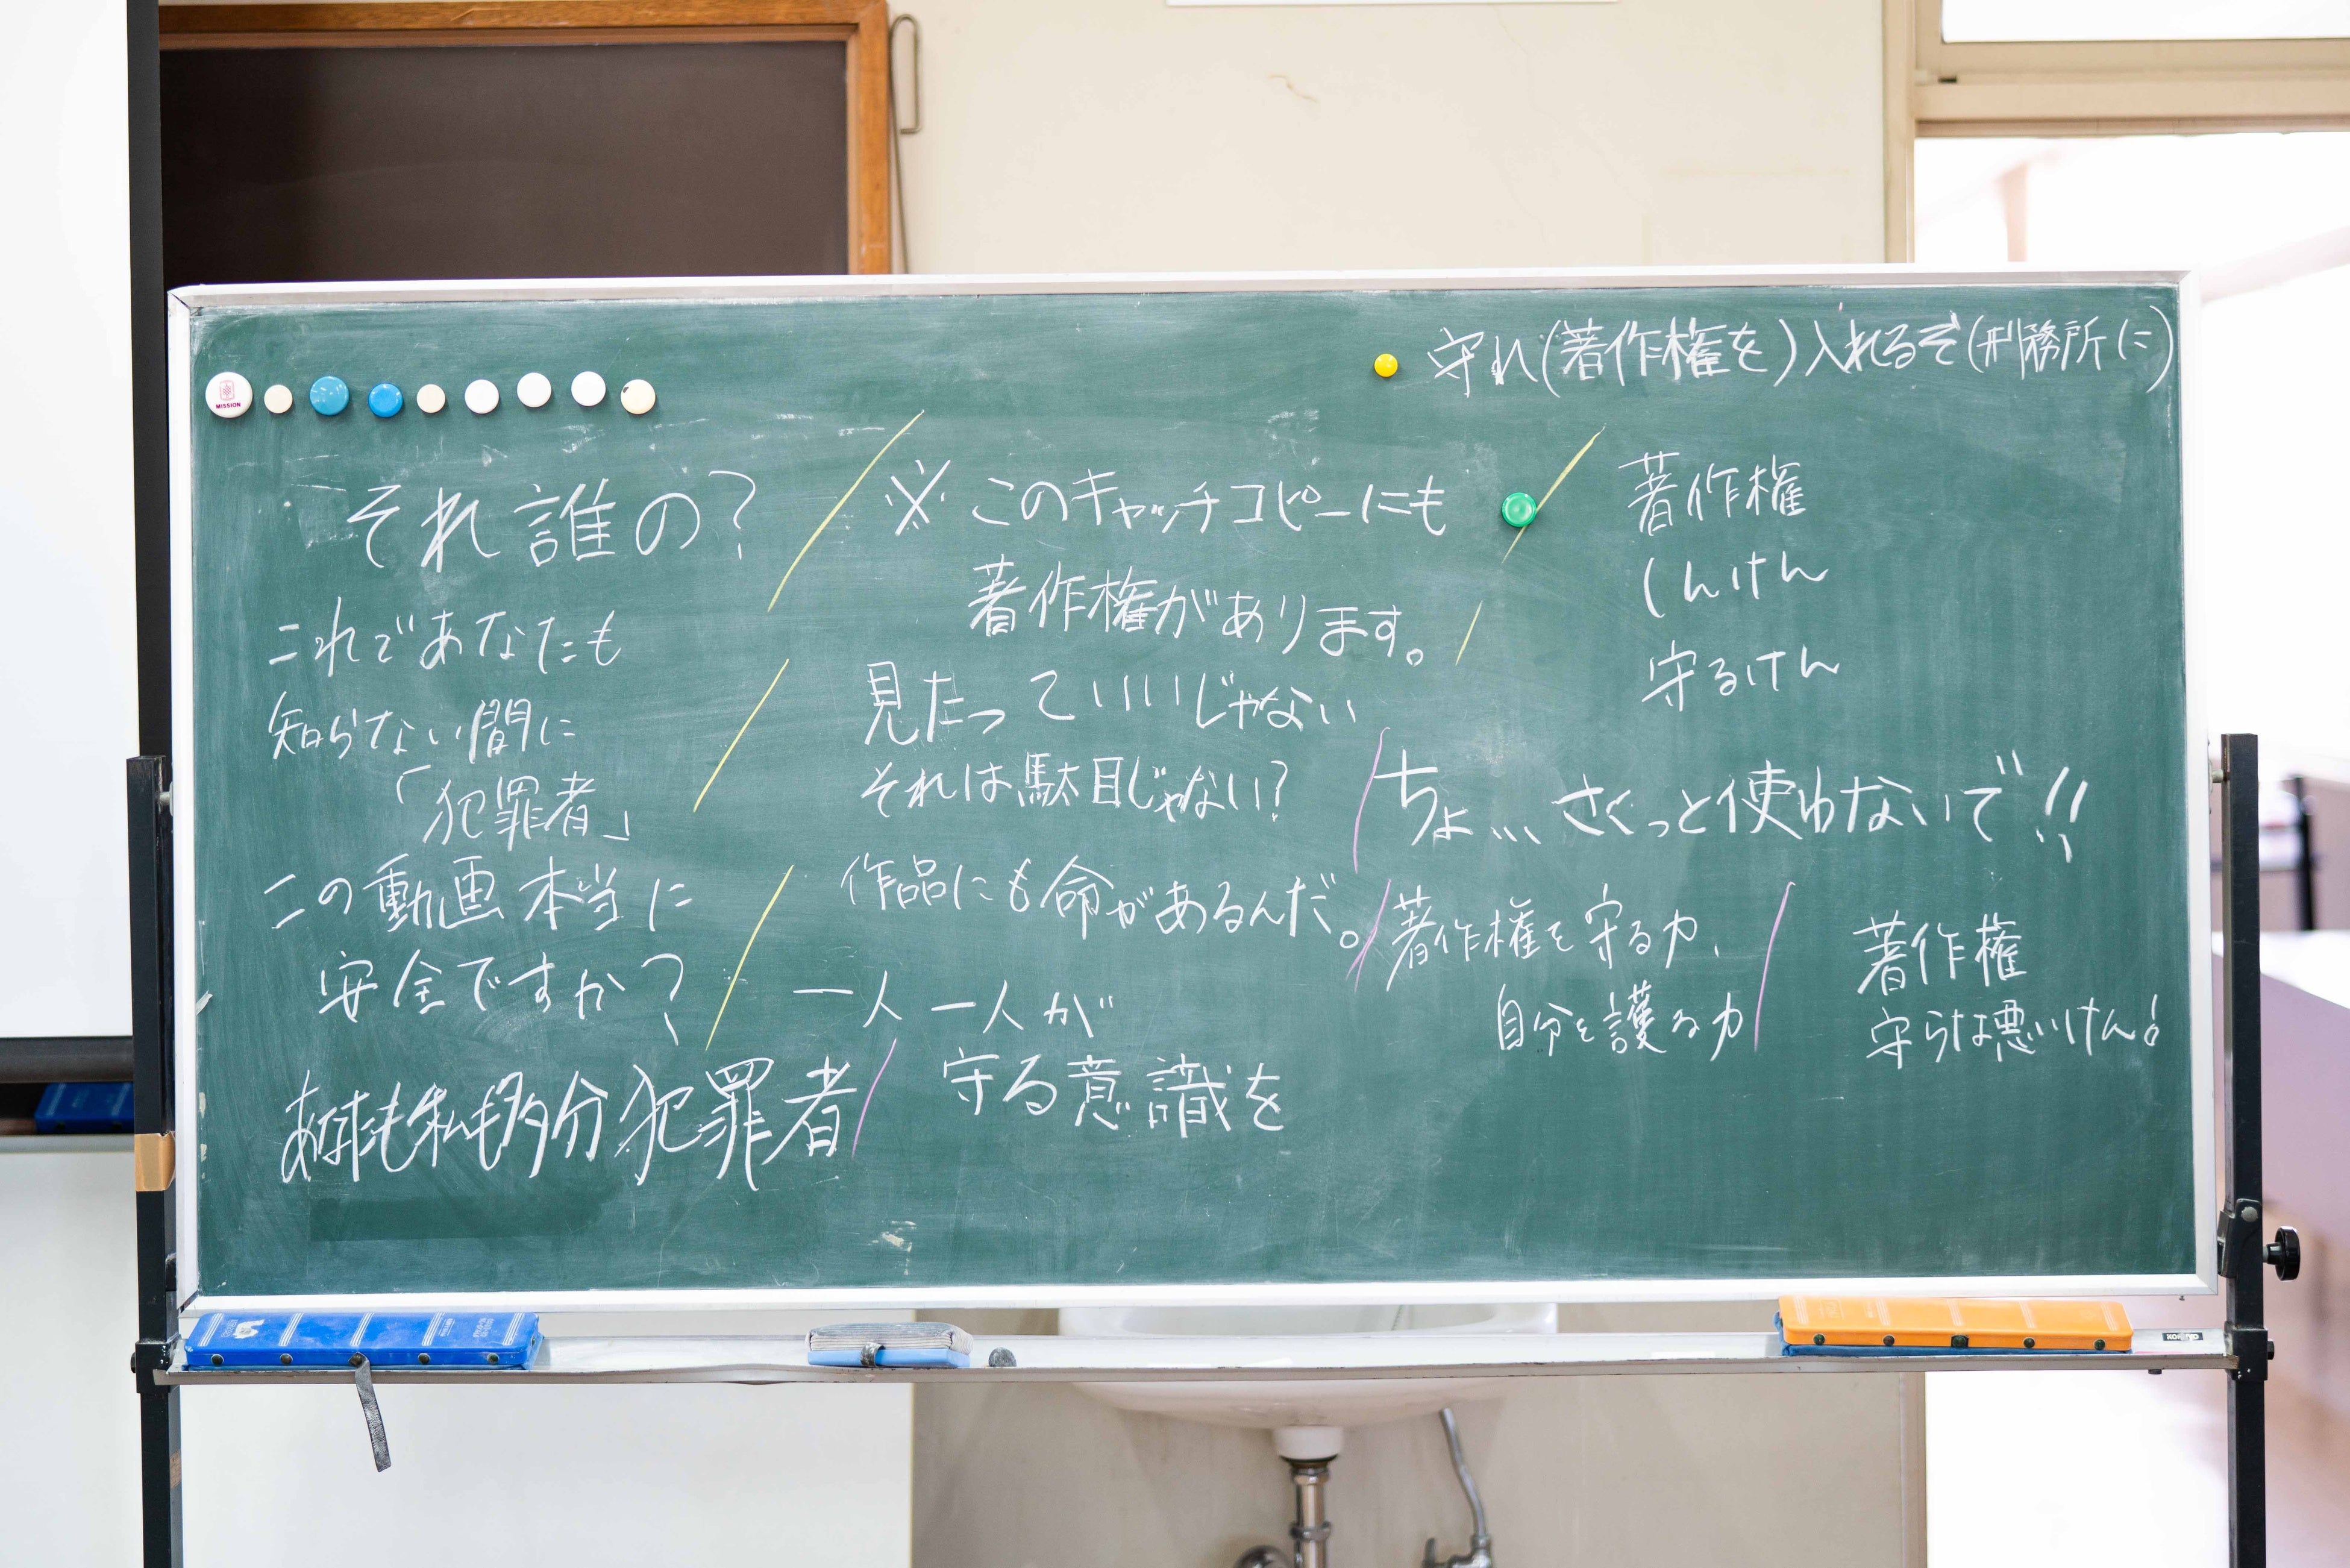 守れ(著作権を)入れるぞ(刑務所に)
それ誰の?
これであなたも
知らない間に
「犯罪者」
この動画本当に
安全ですか?
あなたも私も多分犯罪者
※このキャッチコピーにも
著作権があります。
見たっていいじゃない
それは駄目じゃない?
作品にも命があるんだ。
一人一人が
守る意識を
著作権
しんけん
守るけん
ちょ、、、さくっと使わないで!!
著作権を守る力、
自分を護る力
著作権
守らな悪いけん!
MISSION